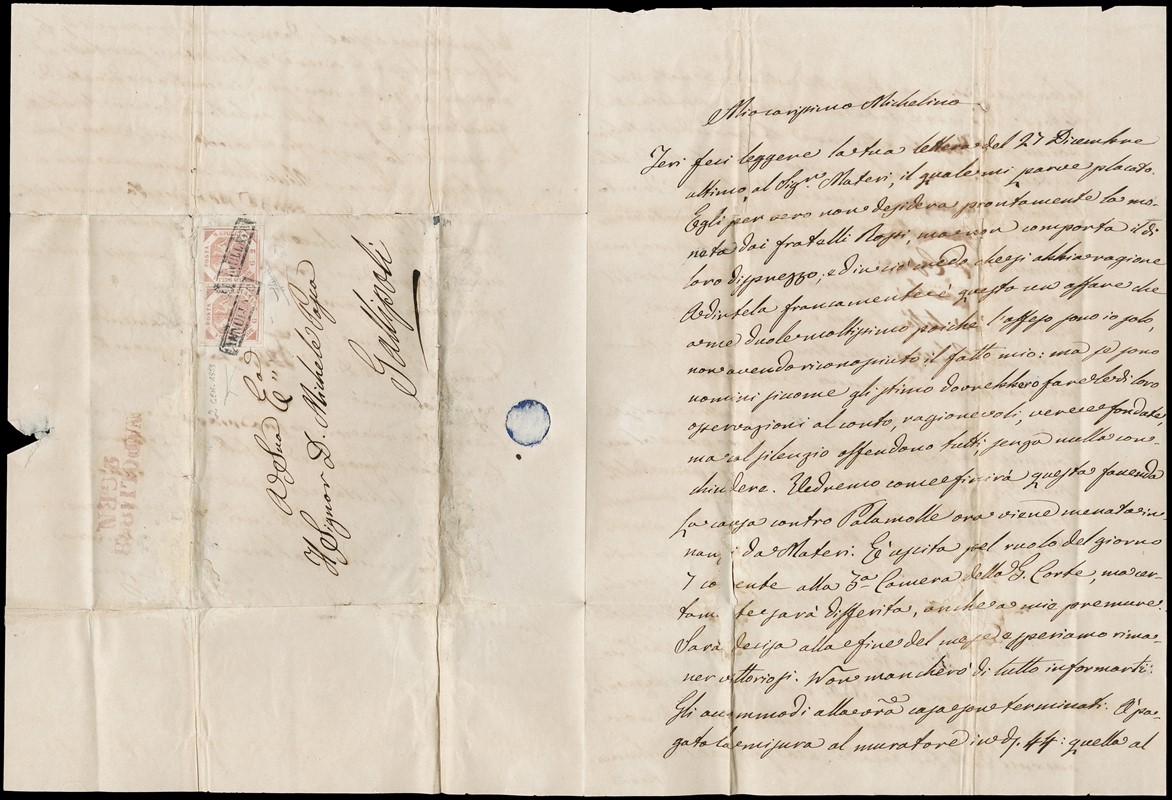 Mio carissimo Michelino
Jeri feci leggere la tua lettera del 27 Dicembre
ultimo, al Sigr. Materi, il quale mi parve placato.
Egli per vero non desidera prontamente la mo-
neta dai fratelli Rossi, ma non comporta il di
loro disprezzo; ed in ciò credo che si abbia ragione
francamente questo un affare che
a me duole moltissimo poichè l'offeso sono io solo,
non avendo riconosciuto il fatto mio: ma se sono
uomini siccome gli stimo dovrebbero fare le di loro
osservazioni al conto, ragionevoli, vere e fondate,
ma col silenzio offendono tutti, senza nulla con-
chiudere. Vedremo come finirà questa faccenda
La causa contro Palamolle ora viene menata in-
nanzi da Materi. E' uscita pel ruolo del giorno
7 co ente alla 3a. Camera della G. Corte, ma cer-
tam te sarà differita, anche a mie premure.
Sarà decisa alla fine del mese, e speriamo rima-
ner vittoriosi. Non mancherò di tutto informarti.
Gli accommodi alla vra casa sono terminati. E' pa-
gata la misura al muratore in d. 44: quella al
A Sua Ecc.
Il Signor D. Michele
Gallipoli
ANNULLATO
ANNULLATO
POSTA
POSTA
2 GEN. 1858